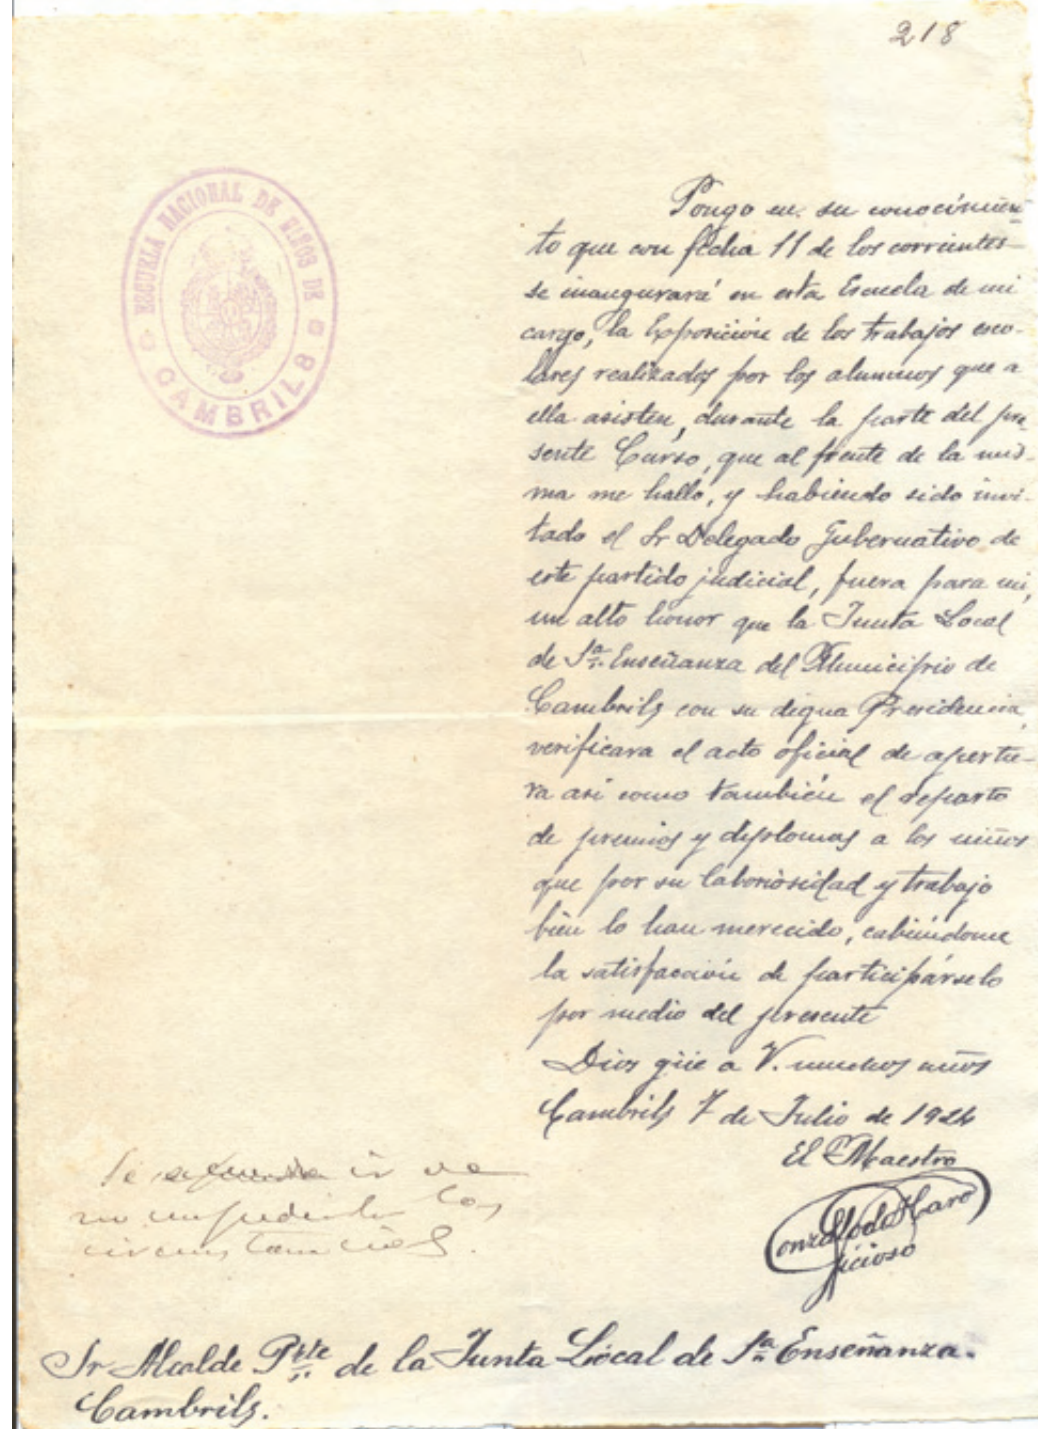 218
ESCUELA NACIONAL DE NIÑOS DE
CAMBRILS
Pongo en su conocimien-
to que con fecha 11 de los corrientes
se inaugurará en esta Escuela de mi
cargo, la Exposición de los trabajos esco-
lares realizados por los alumnos que a
ella asisten, durante la parte del pre-
sente Curso, que al frente de la mis-
ma me hallo, y habiendo sido invi-
tado el Sr Delegado Gubernativo de
este partido judicial, fuera para mi,
un alto honor que la Junta Local
de 1ª Enseñanza del Municipio de
Cambrils con su digna Presidencia,
verificara el acto oficial de apertu-
ra así como también el reparto
de premios y diplomas a los niños
que por su laboriosidad y trabajo
bien lo han merecido, cabiéndome
la satisfacción de participárselo
por medio del presente
Dios güe a V. muchos años
Cambrils 7 de Julio de 1924
El Maestro
Gonzalo de Haro
Se ir
no impedirlo las
circunstancias.
Sr Alcalde Pte de la Junta Local de 1ª Enseñanza.
Cambrils.